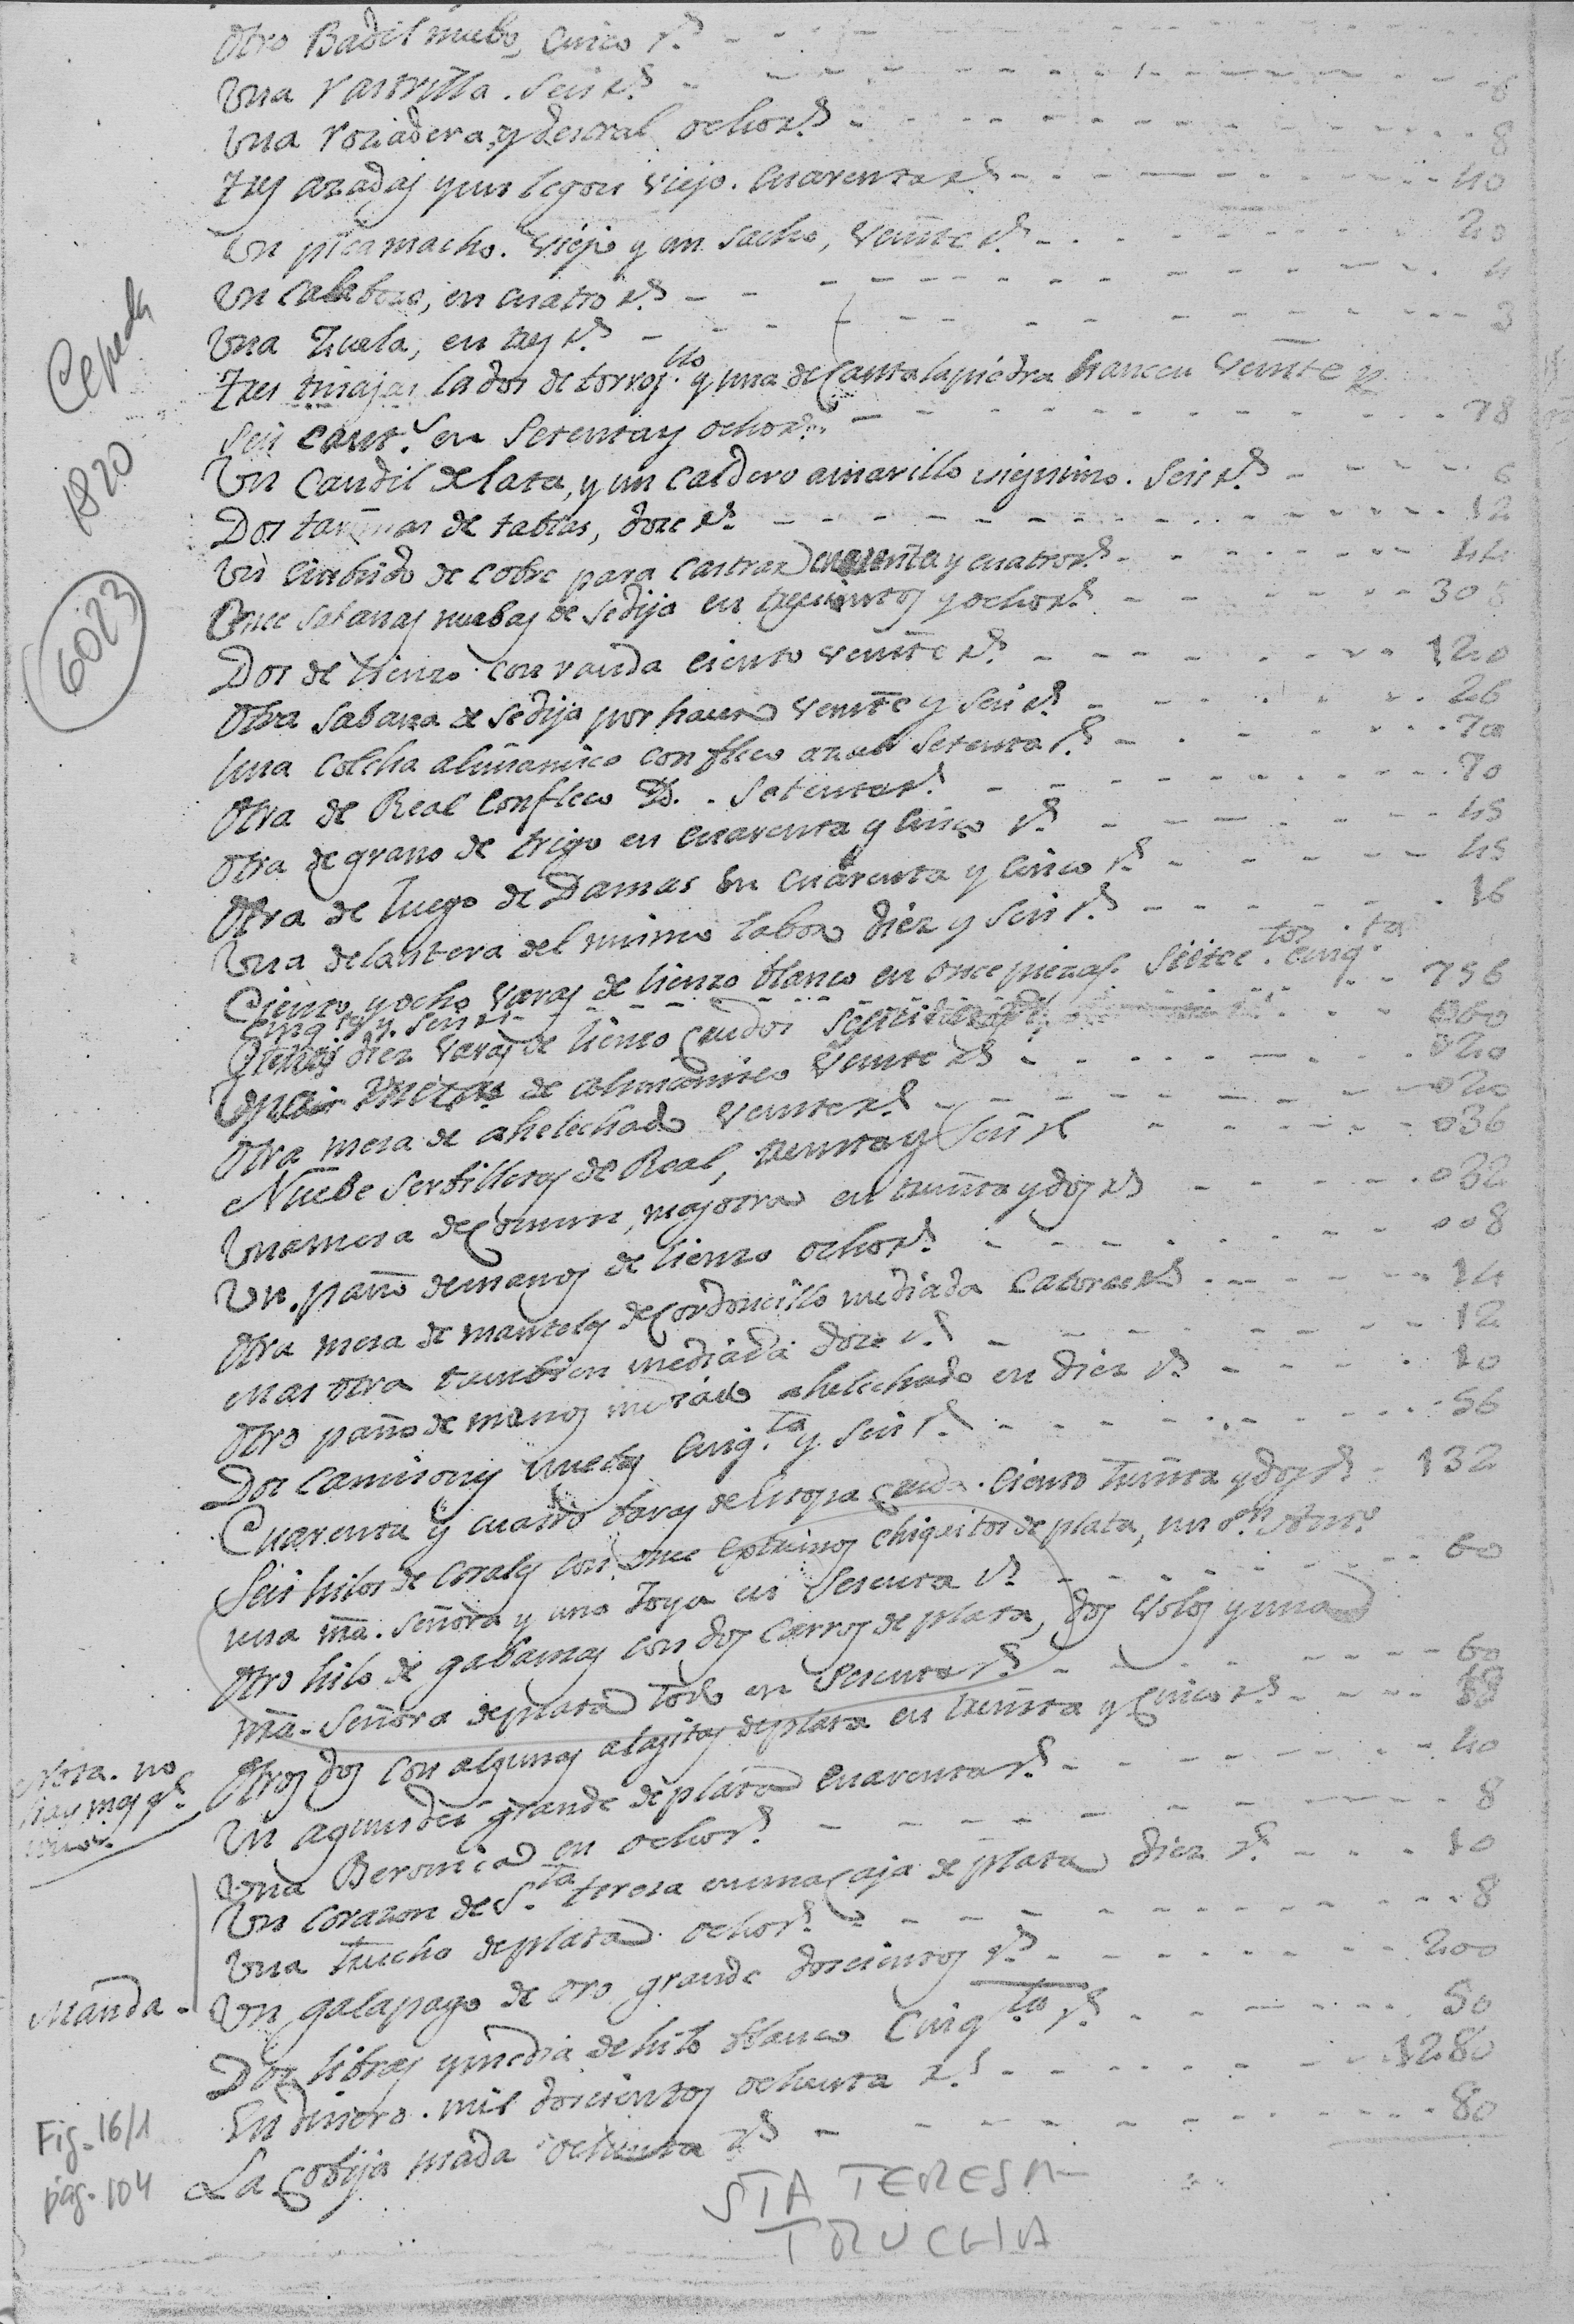 Otro Badil nuebo, Cinco r.s
Una Rastrilla. Seis r.s - - - 6
Una roziadera, y destral ocho r.s - - - 8
Tres azadas y un legon viejo. Cuarenta r.s - - - 40
Un picamacho. viejo y un sacho, veinte r.s - - - 20
Un Calabozo, en cuatro r.s - - - 4
Una Zuela, en tres r.s - - - 3
Tres tinajas las dos de torrejon.llo y una de Cantalapiedra hancen veinte y
Seis cant.s en Setenta y ocho r.s - - - 78
Un Candil de lata, y un Caldero amarillo viejisimo. Seis r.s - - - 6
Dos tarimas de tablas, doze r.s - - - 12
Un Embudo de Cobre para Castrar cuarenta y cuatro r.s - - - 44
Once sabanas nuebas de Sedija en trescientos y ocho r.s - - - 308
Dos de lienzo con randa ciento veinte r.s - - - 120
Otra Sabana de Sedija por hacer veinte y Seis r.s - - - 26
Una Colcha alimanisco con fleco azul Setenta r.s - - - 70
Otra de Real Con fleco Yd. - Setenta r.s - - - 70
Otra de grano de trigo en Cuarenta y Cinco r.s - - - 45
Otra de Juego de Damas en Cuarenta y Cinco r.s - - - 45
Una delantera del mismo labor diez y Seis r.s - - - 16
Ciento y ocho varas de lienzo blanco en once piezas. Siete.tos Cinq.ta
Cinq.ta y Seis r.s - - - 756
diez varas de lienzo Crudo - - - 060
de alimanisco veinte r.s - - - 020
Otra mesa de ahelechado veinte r.s - - - 020
Nuebe Serbilletas de Real, treinta y Seis r.s - - - 036
Una mesa de Comun, mas otra en treinta y dos r.s - - - 032
Un paño de manos de lienzo ocho r.s - - - 008
Otra mesa de manteles de Cordoncillo mediada Catorce r.s - - - 14
mas otra tambien mediada doze r.s - - - 12
Otro paño de manos mediado ahelechado en diez r.s - - - 10
Dos Camisones nuebos Cinq.ta y Seis r.s - - - 56
Cuarenta y cuatro baras de Estopa Cruda. Ciento treinta y dos r.s - 132
Seis hilos de Corales con once Estremos chiquitos de plata, un S.n Ant.o
una mã. Señora y una Joya en Sesenta r.s - - - 60
Otro hilo de gabanzas con dos Cierros de plata, dos bolos y una
mã. Señora de plata todo en Sesenta r.s - - - 60
Otros dos con algunas alajitas de plata en treinta y Cinco r.s - - -
Nota. no
hay mas q.e
uno.
Un agnusdei grande de plata Cuarenta r.s - - - 40
Una Beronica en ocho r.s - - - 8
Un Corazon de S.ta teresa en una Caja de plata diez r.s - - - 10
Una trucha de plata. ocho r.s - - - 8
Manda.
Un galapago de oro grande doscientos r.s - - - 200
Dos libras y media de hilo blanco Cinq.ta r.s - - - 50
En dinero. mil doscientos ochenta r.s - - - 1280
La Cobija usada ochenta r.s - - - 80
STA TERESA
TRUCHA
Cepeda
1820
6023
Fig. 16/1
pág. 104